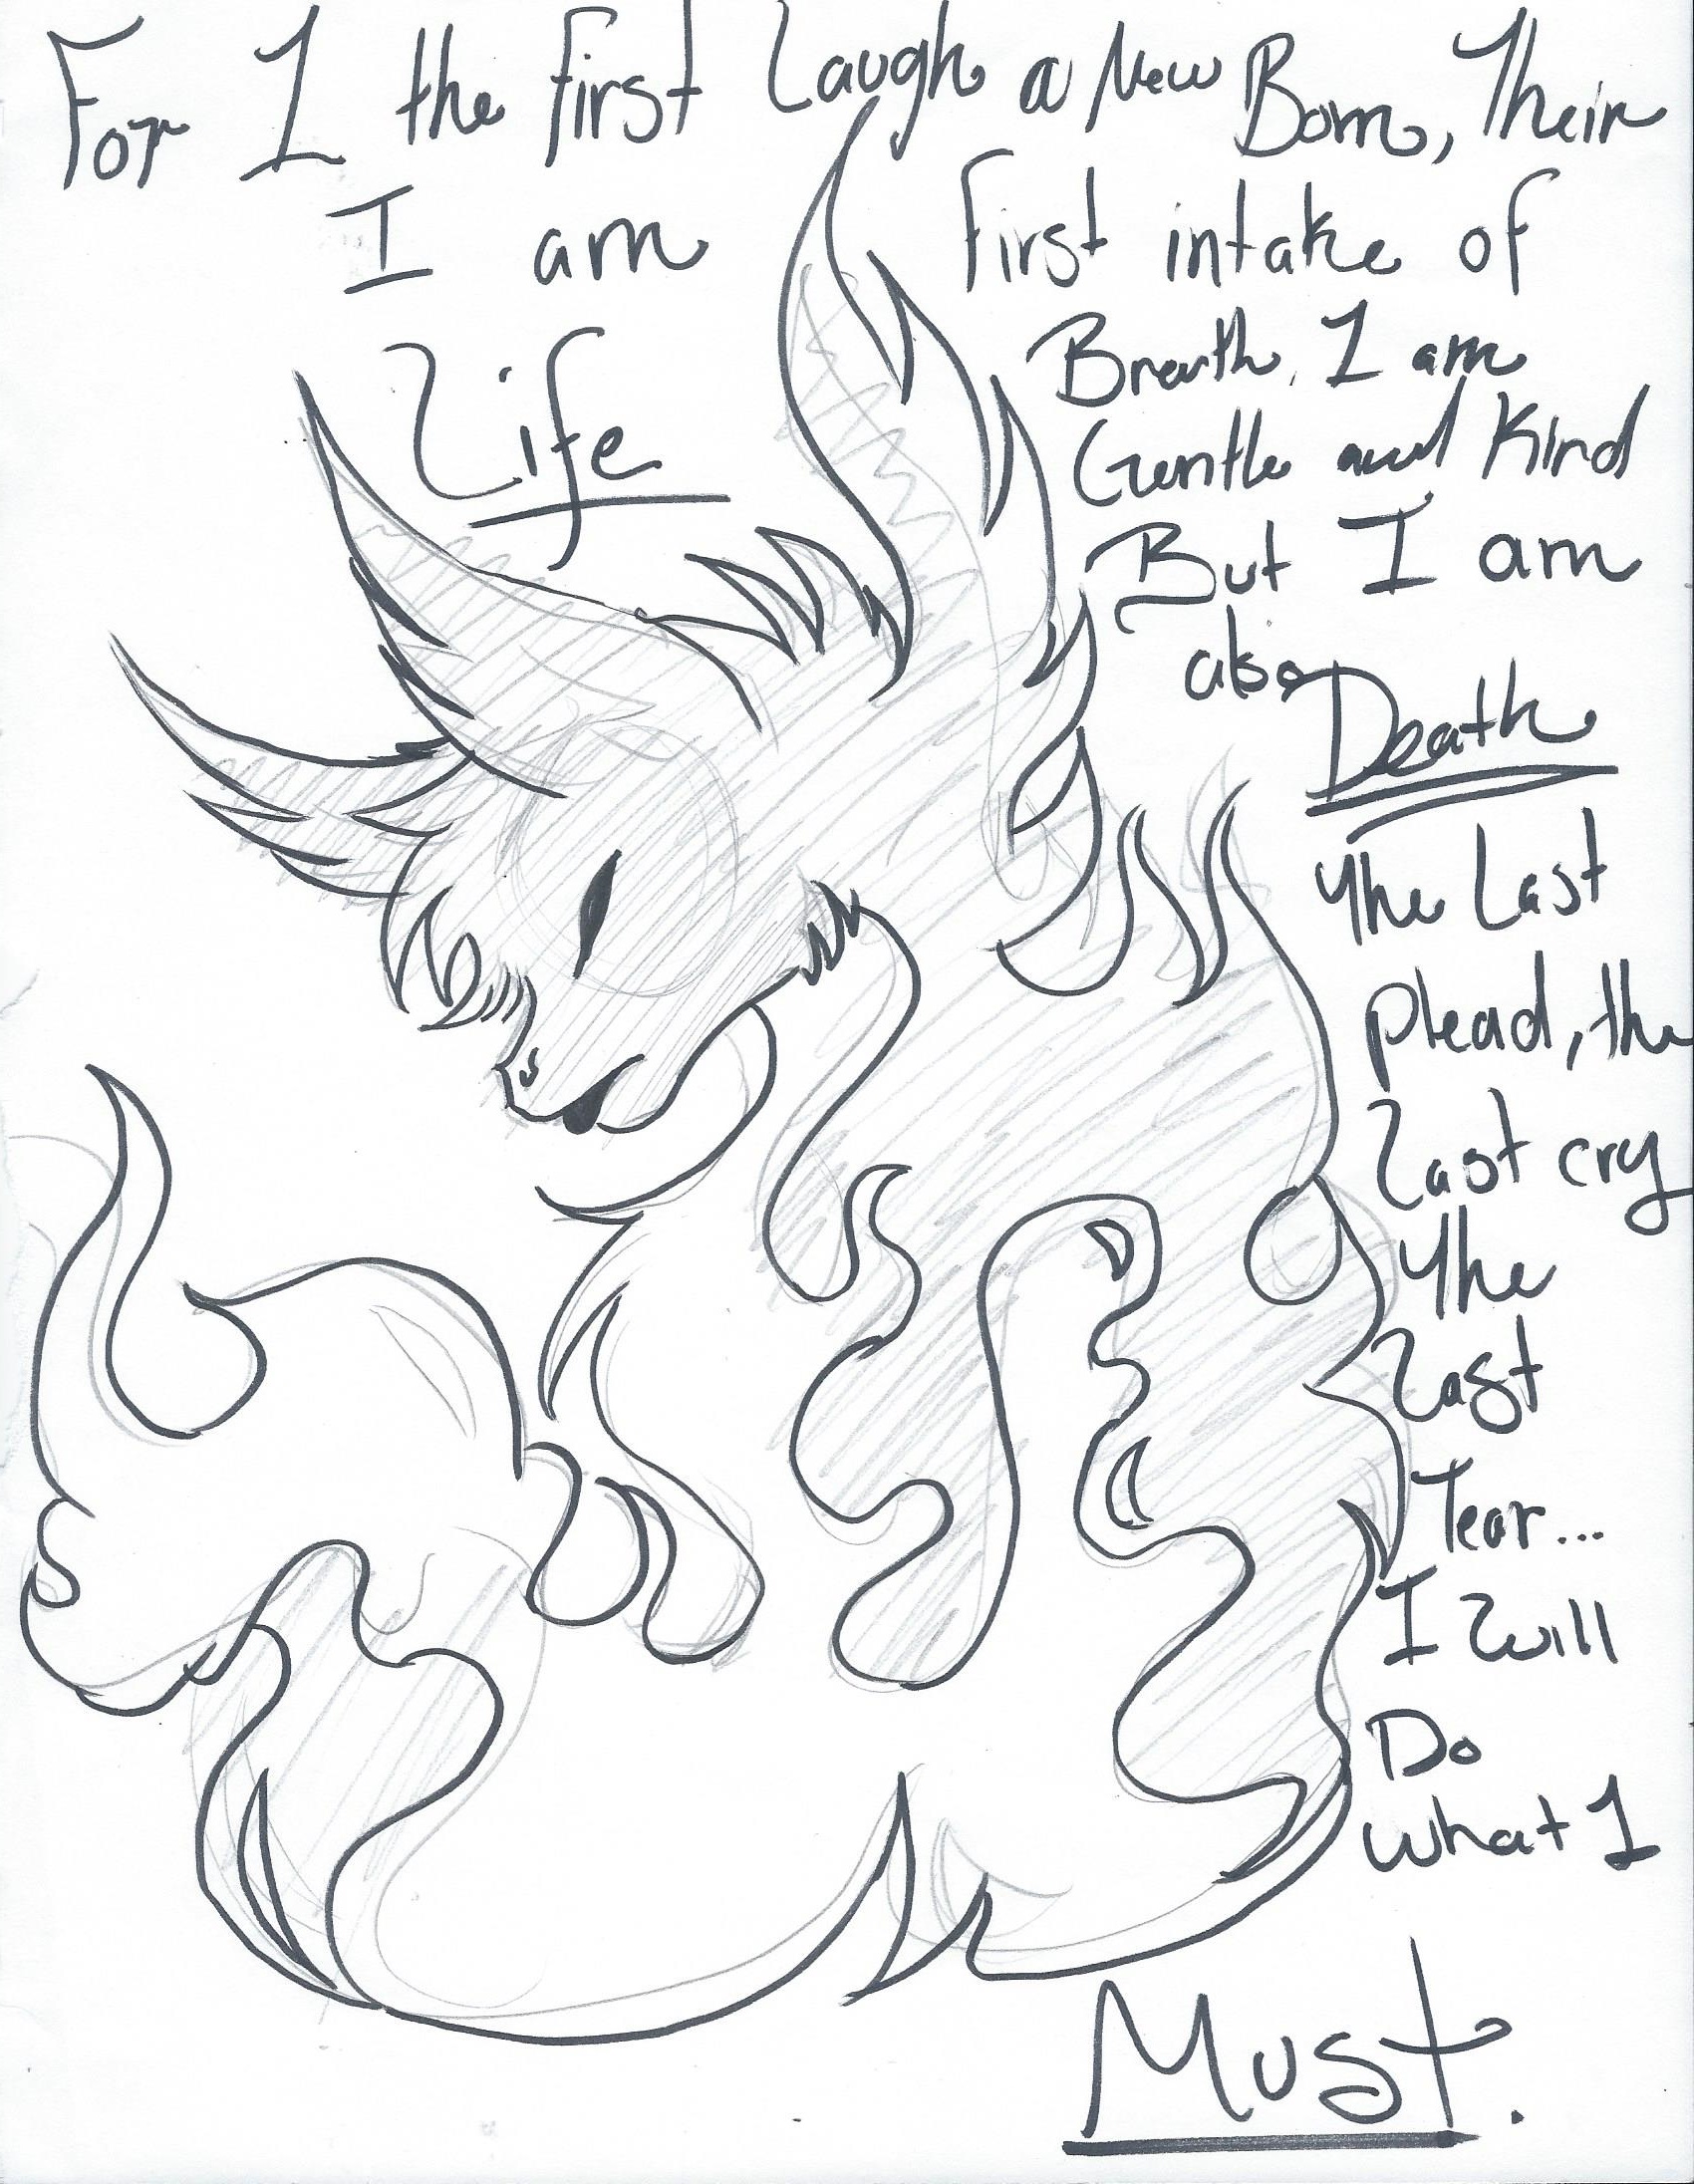 For I the first Laugh a New Born, Their
I am
Life
first intake of
Breath. I am
Gentle and Kind
But I am
also
Death
The Last
plead, the
Last cry
The
Last
Tear...
I Will
Do
what I
Must.